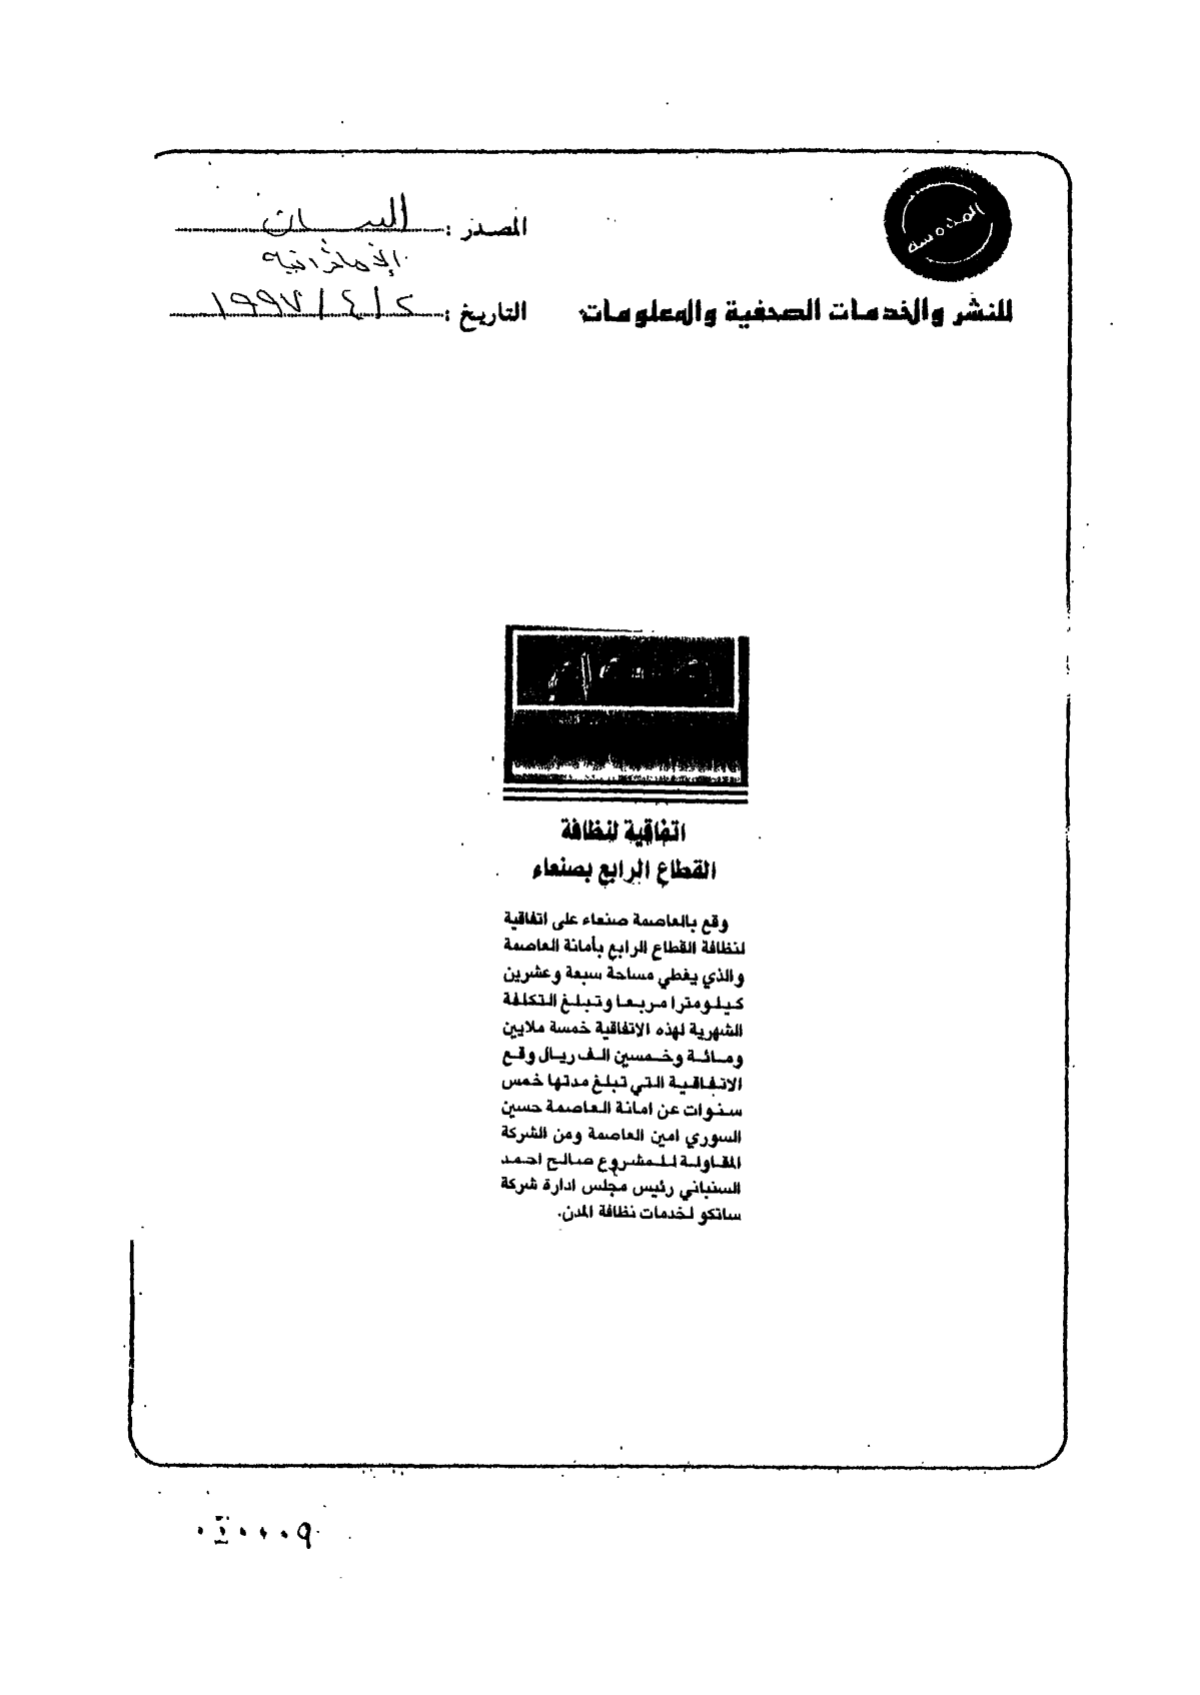 المصدر : البيان
الإماراتية
للنشر والخدمات الصحفية والمعلومات
التاريخ : ٢/٤/١٩٩٧
اتفاقية لنظافة
القطاع الرابع بصنعاء
وقع بالعاصمة صنعاء على اتفاقية
لنظافة القطاع الرابع بأمانة العاصمة
والذي يغطي مساحة سبعة وعشرين
كيلومترا مربعا وتبلغ التكلفة
الشهرية لهذه الاتفاقية خمسة ملايين
ومائة وخمسين الف ريال وقع
الاتفاقية التي تبلغ مدتها خمس
سنوات عن امانة العاصمة حسين
السوري امين العاصمة ومن الشركة
المقاولة للمشروع صالح احمد
السنباني رئيس مجلس ادارة شركة
سانكو لخدمات نظافة المدن.